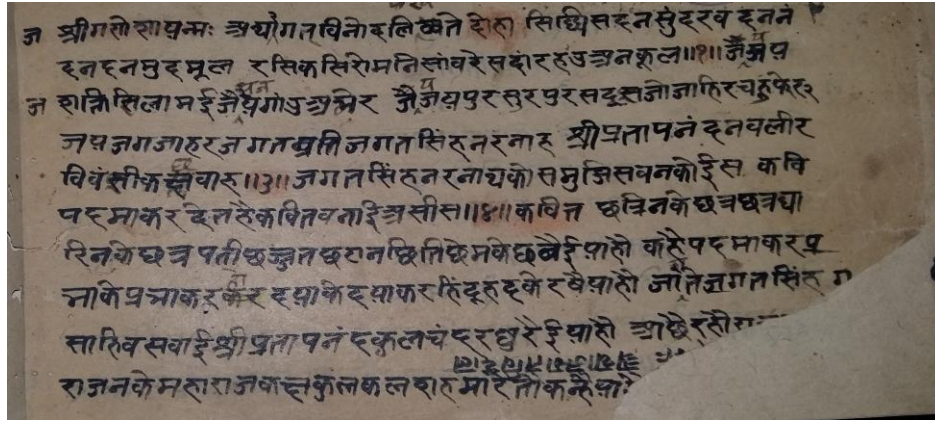 ज श्रीगणेशायनमः अथ जगतविनोदलिख्यते दोहा सिद्धिसदनसुंदरवदननं
दनदनमुदमूल रसिकसिरोमनिसांवरेसदारहउअनकूल॥१॥जैजय
ज शक्तिसिलामई जैजयपुरसुरपुरसदृसजोजाहिरचहुफेर२
जयजगजाहरजगतप्रतिजगतसिंहनरनाह श्रीप्रतापनंदनवलीर
विवंसीकछवाह॥३॥जगतसिंहनरनाथकोसमुझिसवनकोईस कवि
पदमाकरदेतहैकवितवनाईअसीस॥४॥कवित्त छत्रिनकेछत्रछत्रधा
रिनकेछत्रपतीछज्जतछटानछितिछेमकेछवैईयाहौ कहैपदमाकरप्र
भाकेप्रभाकर दयाकेदयाकरहिंदूहदकेरषैयाहौ जागतेजगतसिंह
साहिवसवाईश्रीप्रतापनंदकुलचंदरघुरैईयाहौ आछेरहौ
राजनकेमहाराजकछकुलकलशहमारेतोकन्हैया